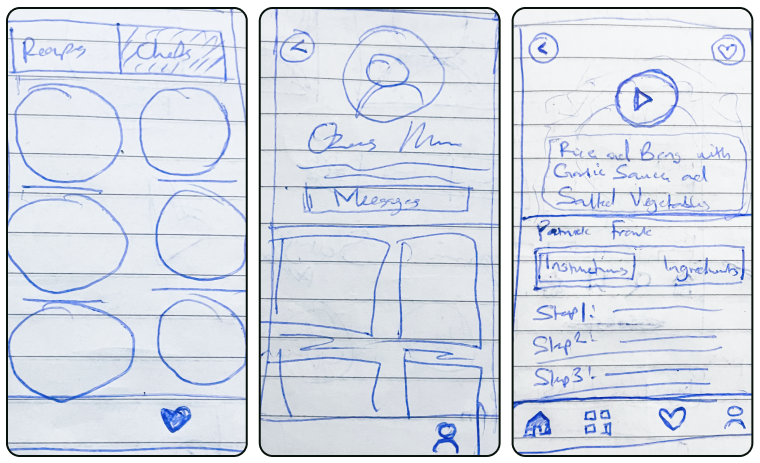 Recipes
Chefs
Messages
Rice and Beans with
Garlic Sauce and
Salted Vegetables
Patrick Frank
Instructions
Ingredients
Step 1:
Step 2:
Step 3: